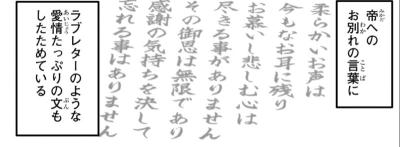 帝への
お別れの言葉に
柔らかいお声は
今もなお耳に残り
お慕いし悲しむ心は
尽きる事がありません
その御恩は無限であり
感謝の気持ちを決して
忘れる事はありません
ラブレターのような
愛情たっぷりの文も
したためている